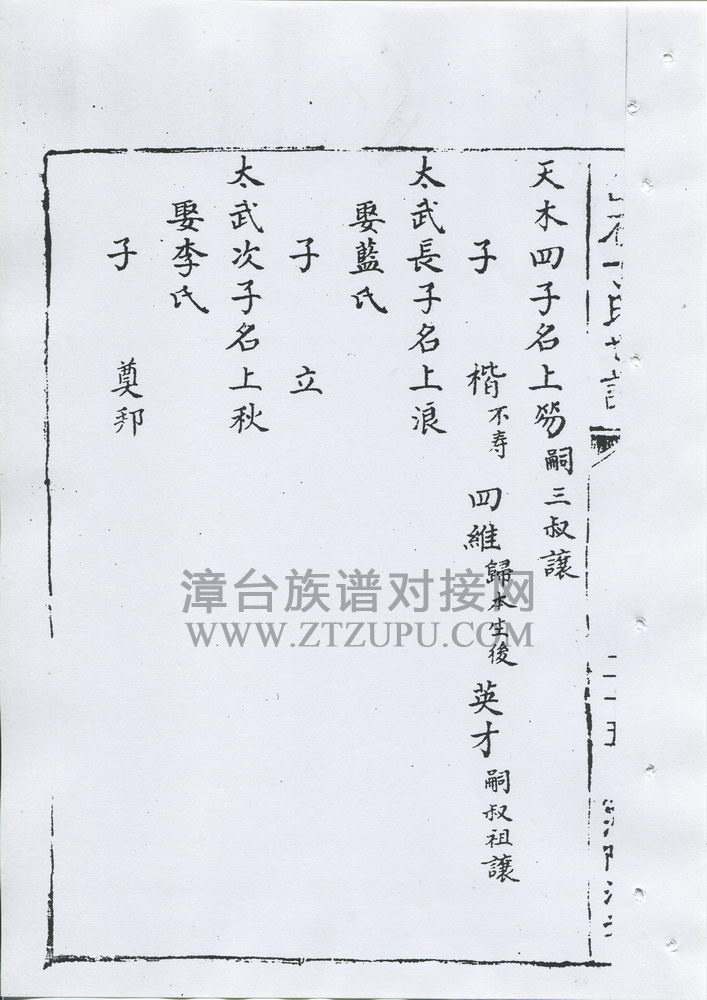 天木四子名上笏嗣三叔讓
子 楷不寿 四維歸本生後 英才嗣叔祖讓
太武長子名上浪
娶藍氏
子 立
太武次子名上秋
娶李氏
子 奠邦
漳台族谱对接网
WWW.ZTZUPU.COM